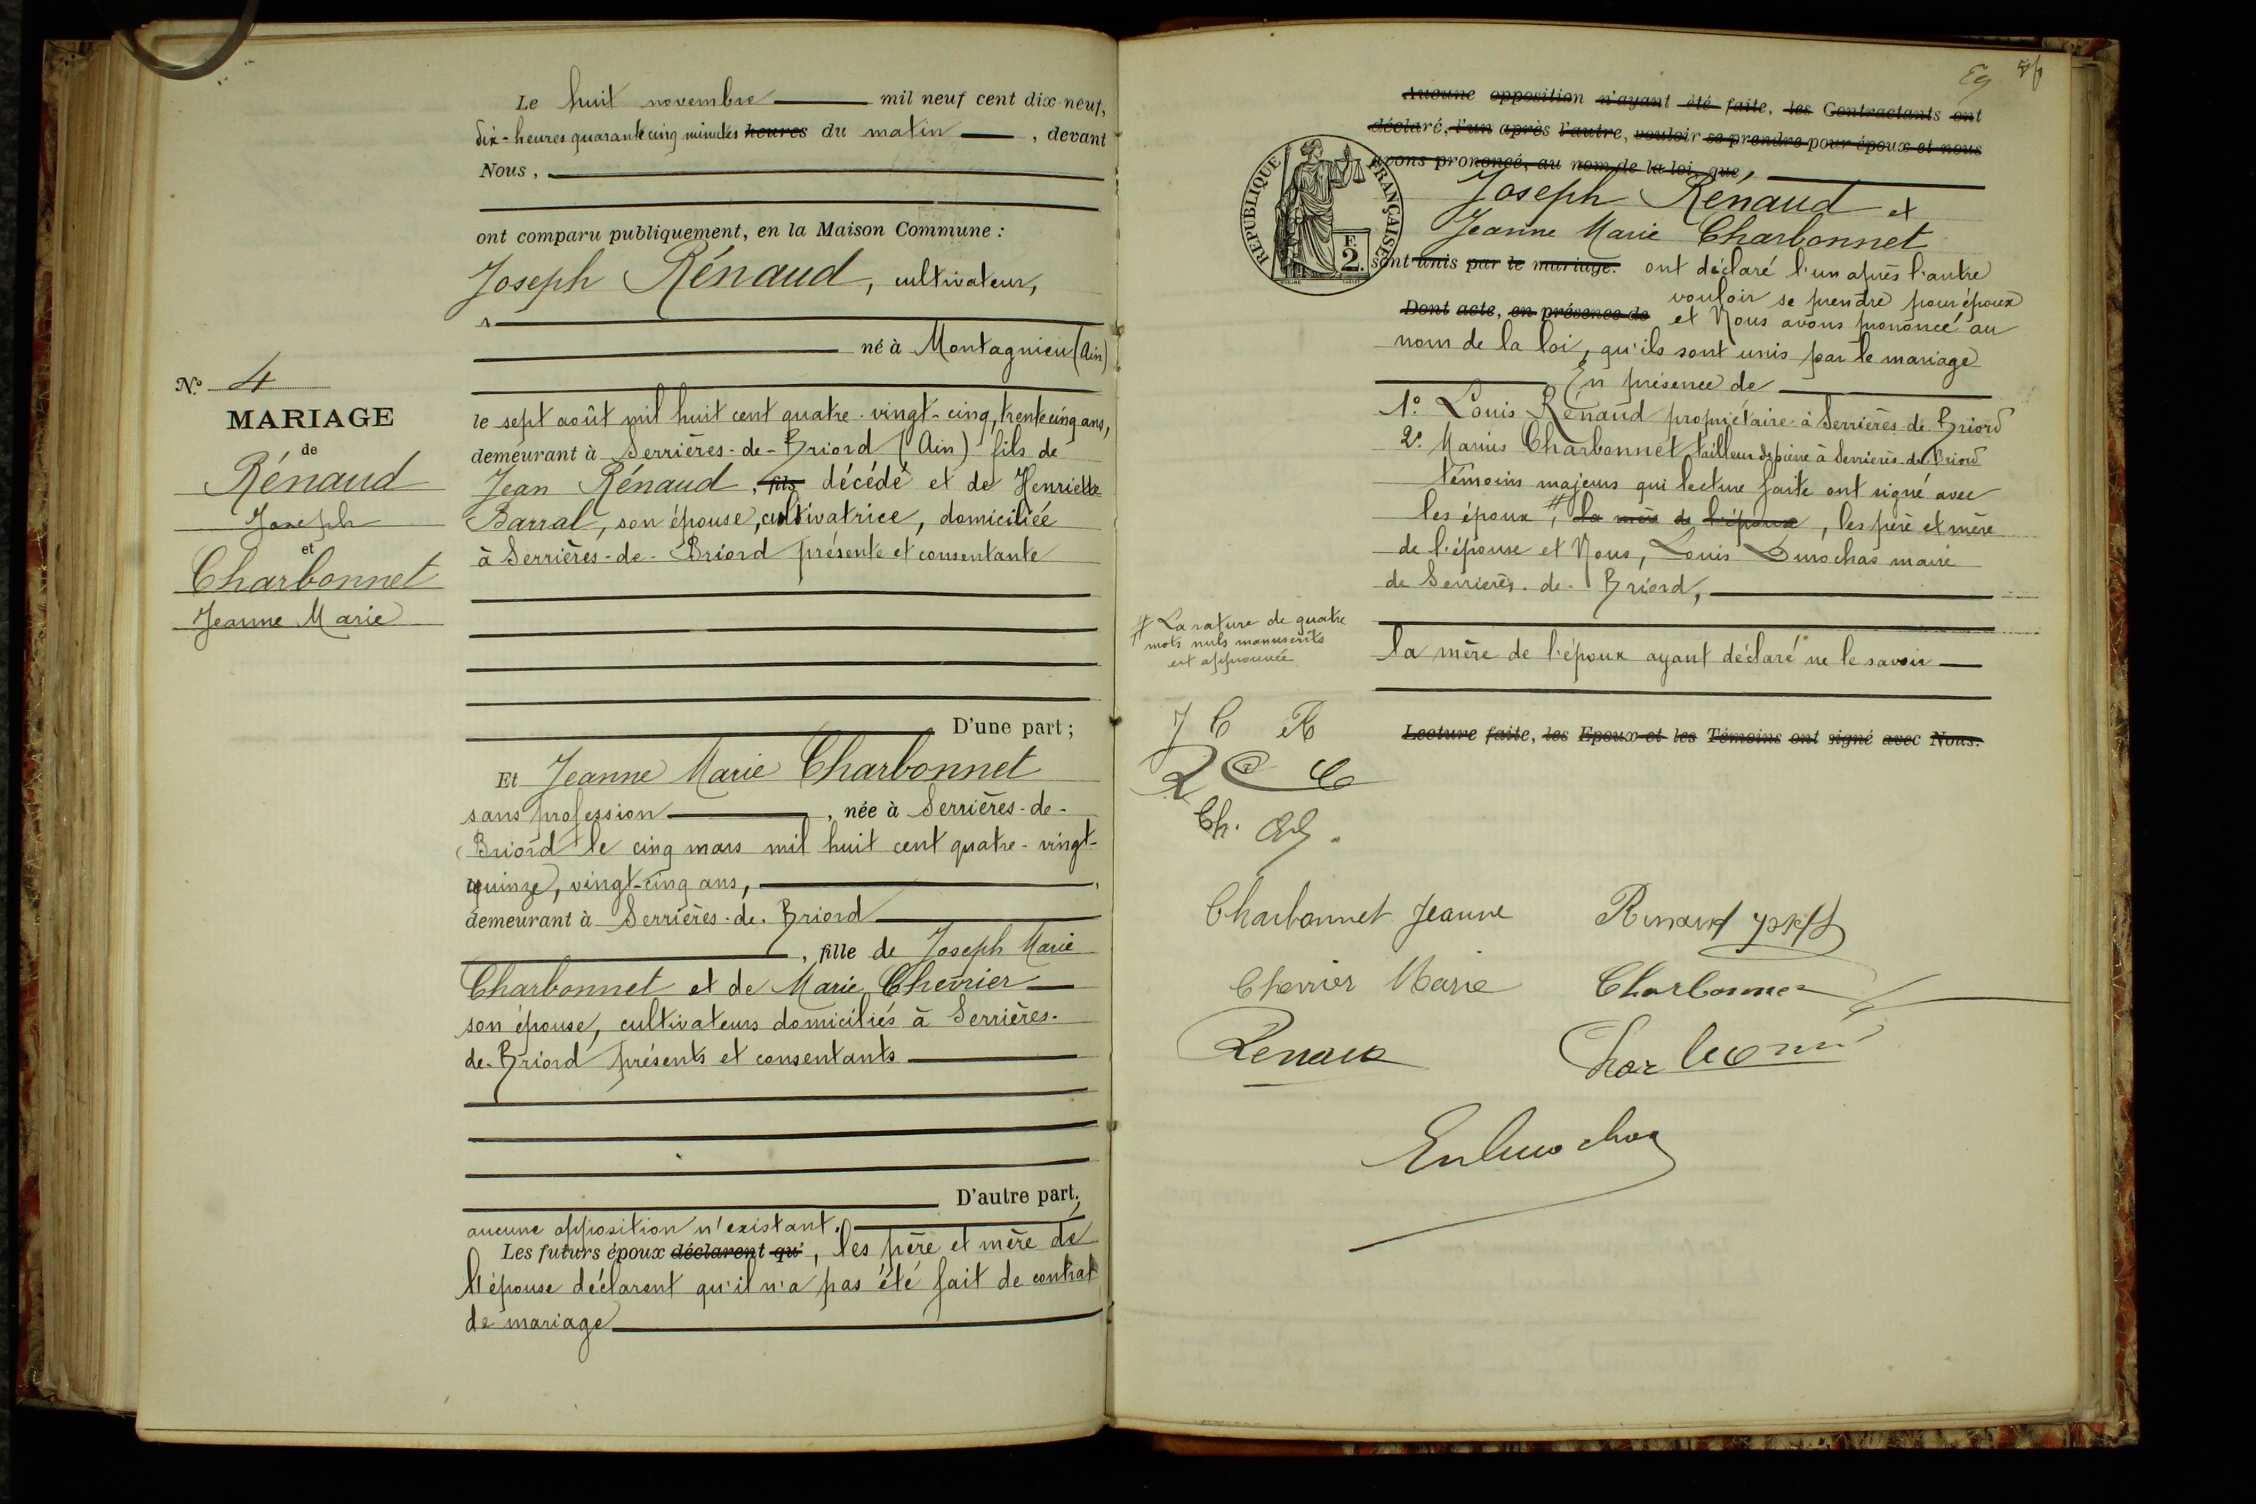 Le huit novembre mil neuf cent dix-neuf,
dix-heures quarante cinq minutes heures du matin, devant
Nous,
ont comparu publiquement, en la Maison Commune :
Joseph Rénaud, cultivateur,
né à Montagnieu (Ain)
le sept août mil huit cent quatre-vingt-cinq, trente cinq ans,
demeurant à Serrières-de-Briord (Ain) fils de
Jean Rénaud, fils décédé et de Henriette
Barral, son épouse, cultivatrice, domiciliée
à Serrières-de-Briord présente et consentante
D'une part ;
N° 4
MARIAGE
de
Rénaud
Joseph
et
Charbonnet
Jeanne Marie
Et Jeanne Marie Charbonnet
sans profession, née à Serrières-de-
Briord le cinq mars mil huit cent quatre-vingt-
quinze, vingt-cinq ans,
demeurant à Serrières-de-Briord
, fille de Joseph Marie
Charbonnet et de Marie Chevrier
son épouse, cultivateurs domiciliés à Serrières-
de-Briord présents et consentants
D'autre part,
aucune opposition n'existant.
Les futurs époux déclarent qu', les père et mère de
l'épouse déclarent qu'il n'a pas été fait de contrat
de mariage
Aucune opposition n'ayant été faite, les Contractants ont
déclaré, l'un après l'autre, vouloir se prendre pour époux et nous
avons prononcé, au nom de la loi, que,
REPUBLIQUE FRANÇAISE
F.
2.
Joseph Rénaud et
Jeanne Marie Charbonnet
sont unis par le mariage. ont déclaré l'un après l'autre
vouloir se prendre pour époux
Dont acte, en présence de et Nous avons prononcé au
nom de la loi, qu'ils sont unis par le mariage
En présence de
1° Louis Rénaud propriétaire à Serrières-de-Briord
2° Marius Charbonnet tailleur de pierre à Serrières-de-Briord
témoins majeurs qui lecture faite ont signé avec
les époux, # la mère de l'époux, les père et mère
de l'épouse et Nous, Louis Durochas maire
de Serrières-de-Briord,
la mère de l'époux ayant déclaré ne le savoir
# La rature de quatre
mots nuls manuscrits
est approuvée
J C R
Ch.
Lecture faite, les Epoux et les Témoins ont signé avec Nous.
Charbonnet Jeanne
Chevrier Marie
Charbonnet
Renaud